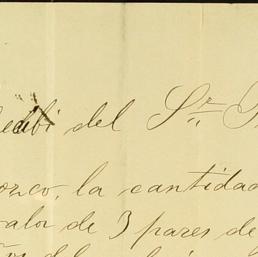 Recibi del Sr
orozco, la cantidad
valor de 3 pares de